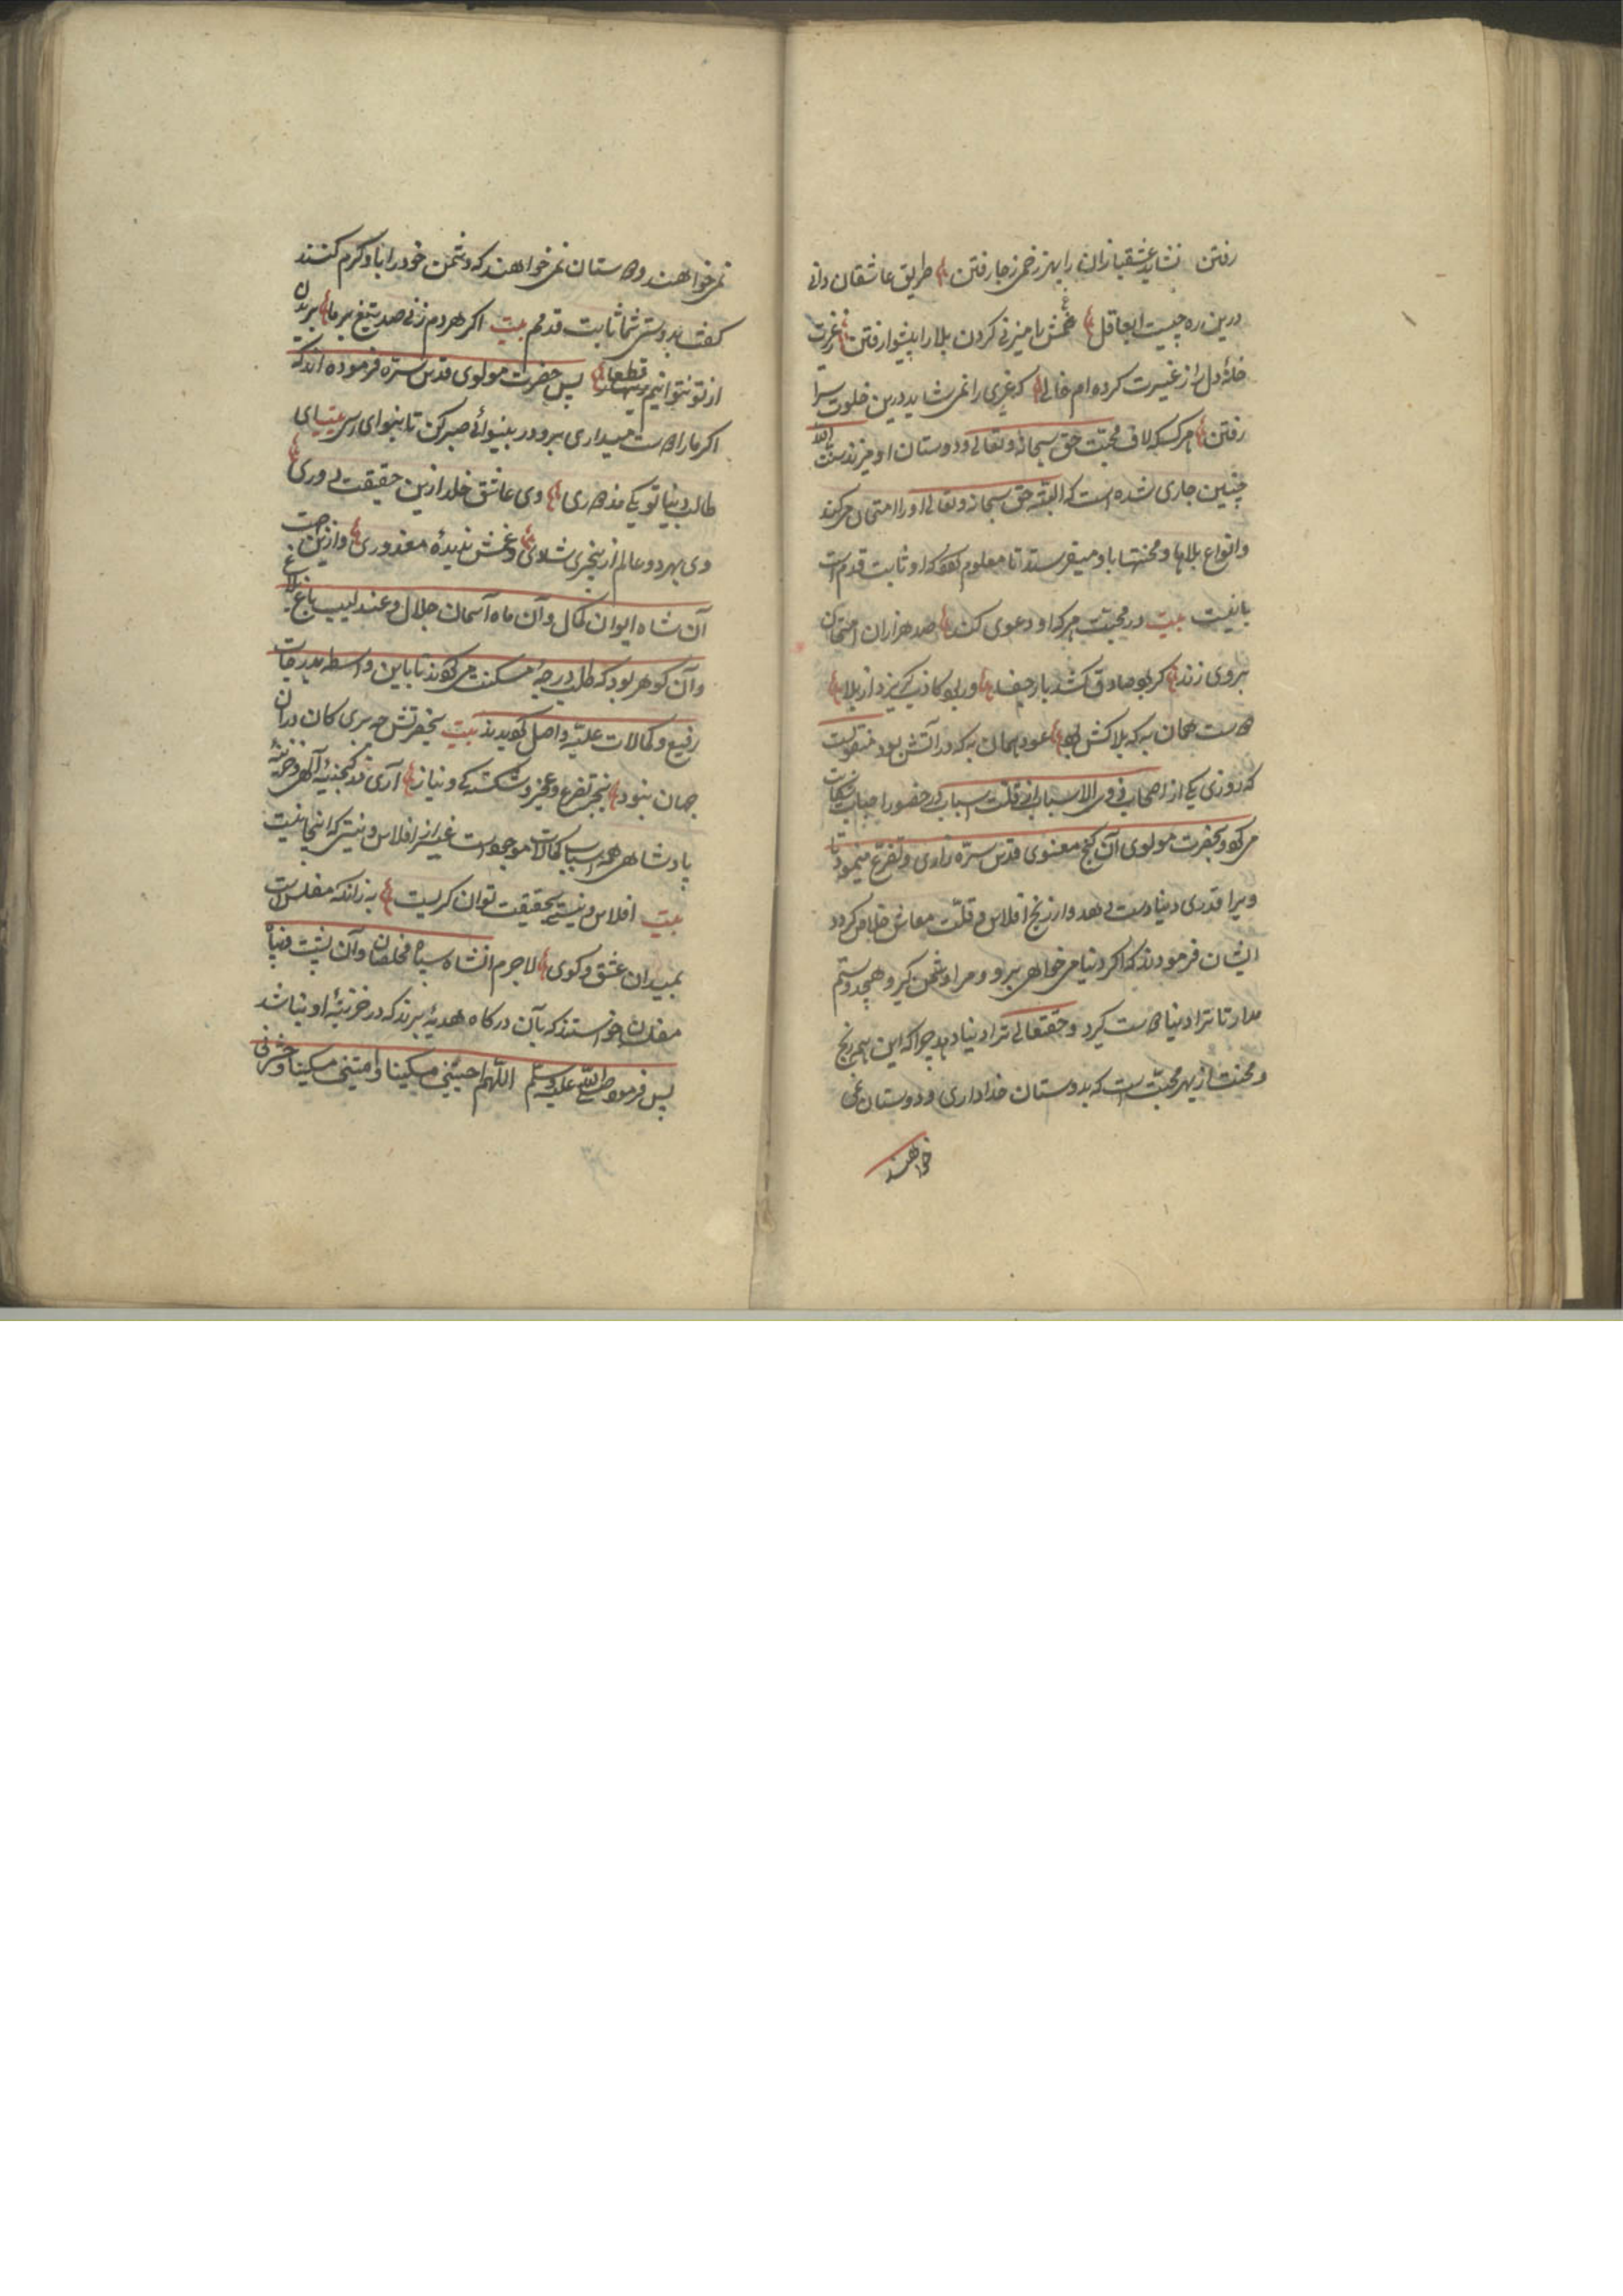 رفتن نشاید عشقبازان را بهر زخمی ز جا رفتن طریق عاشقان دانی
درین ره چیست ای عاقل غمش را میزبانی کردن بلا را پیشوا رفتن ز غیرت
خانهٔ دل را ز غیرت کرده ام خالی که غیری را نمی شاید درین خلوت سرا
رفتن هر کسیکه لاف محبت حق سبحانه وتعالی ودوستان او میزند سنت الله
چنین جاری شده است که البته حق سبحانه وتعالی اورا امتحان میکند
وانواع بلاها ومحنتها باو میفرستد تا معلوم که او ثابت قدم است
یا نیست بیت در محبت هر که او دعوی کند صد هزاران امتحان
بروی زند گر بود صادق کشد بار جفا ور بود کاذب گریزد از بلا
دوست همان به که بلاکش بود عود همان به که در آتش بود منقولست
که روزی یکی از اصحاب فی الاسباب از قلت اسباب در حضور احباب شکایت
می کرد وبحضرت مولوی آن گنج معنوی قدس سره زاری وتضرع مینمود تا
ویرا قدری دنیا دست دهد واز رنج افلاس وقلت معاش خلاص گردد
ایشان فرمودند که اگر دنیا می خواهی برو ومرا دشمن گیر وهیچ دوستم
مدار تا ترا دنیا دوست گیرد وحقتعالی ترا دنیا دهد چرا که این همه رنج
ومحنت از بهر محبت است که بدوستان خدا داری ودوستان نمی
خواهند
نمی خواهند ودوستان نمی خواهند که دشمن خود را باو کرم کنند
گفت بدوستی شما ثابت قدمم بیت اگر هر دم زنی صد تیغ بر ما بریدن
از تو نتوانیم قطعا پس حضرت مولوی قدس سره فرموده اند که
اگر ما را دوست میداری برو ودر بینوائی صبر کن تا بنوای رسی بیت ای
طالب دنیا تو یکی مزدوری وی عاشق خلد ازین حقیقت دوری
وی بهر دو عالم از بیخبری شادی وغمش ندیدهٔ معذوری وازین جهت
آن شاه ایوان کمال وآن ماه آسمان جلال وعندلیب باغ بلاغ
وآن گوهر بود که طلب درجهٔ مسکنت می کوند تا باین واسطه بدرجات
رفیع وکمالات علیه واصل کویدند بیت بحضرتش چه بری کان در آن
جهان نبود بجز تضرع وعجز وشکستگی ونیاز آری در گنجینهٔ الهی وخزینهٔ
پادشاهی همه اسباب کمالات موجود است غیر از افلاس ونیستی که اینجا نیست
بیت افلاس ونیستی بحقیقت توانگریست به زانکه مفلس است
بمیدان عشق وکوی لاجرم آنشاه سپاه مخلصان وآن پشت وپناه
مفلسان خواستند که بآن درگاه هدیهٔ برند که در خزینهٔ او نباشد
پس فرمود صلی الله علیه وسلم اللهم احیینی مسکینا وامتنی مسکینا واحشرنی